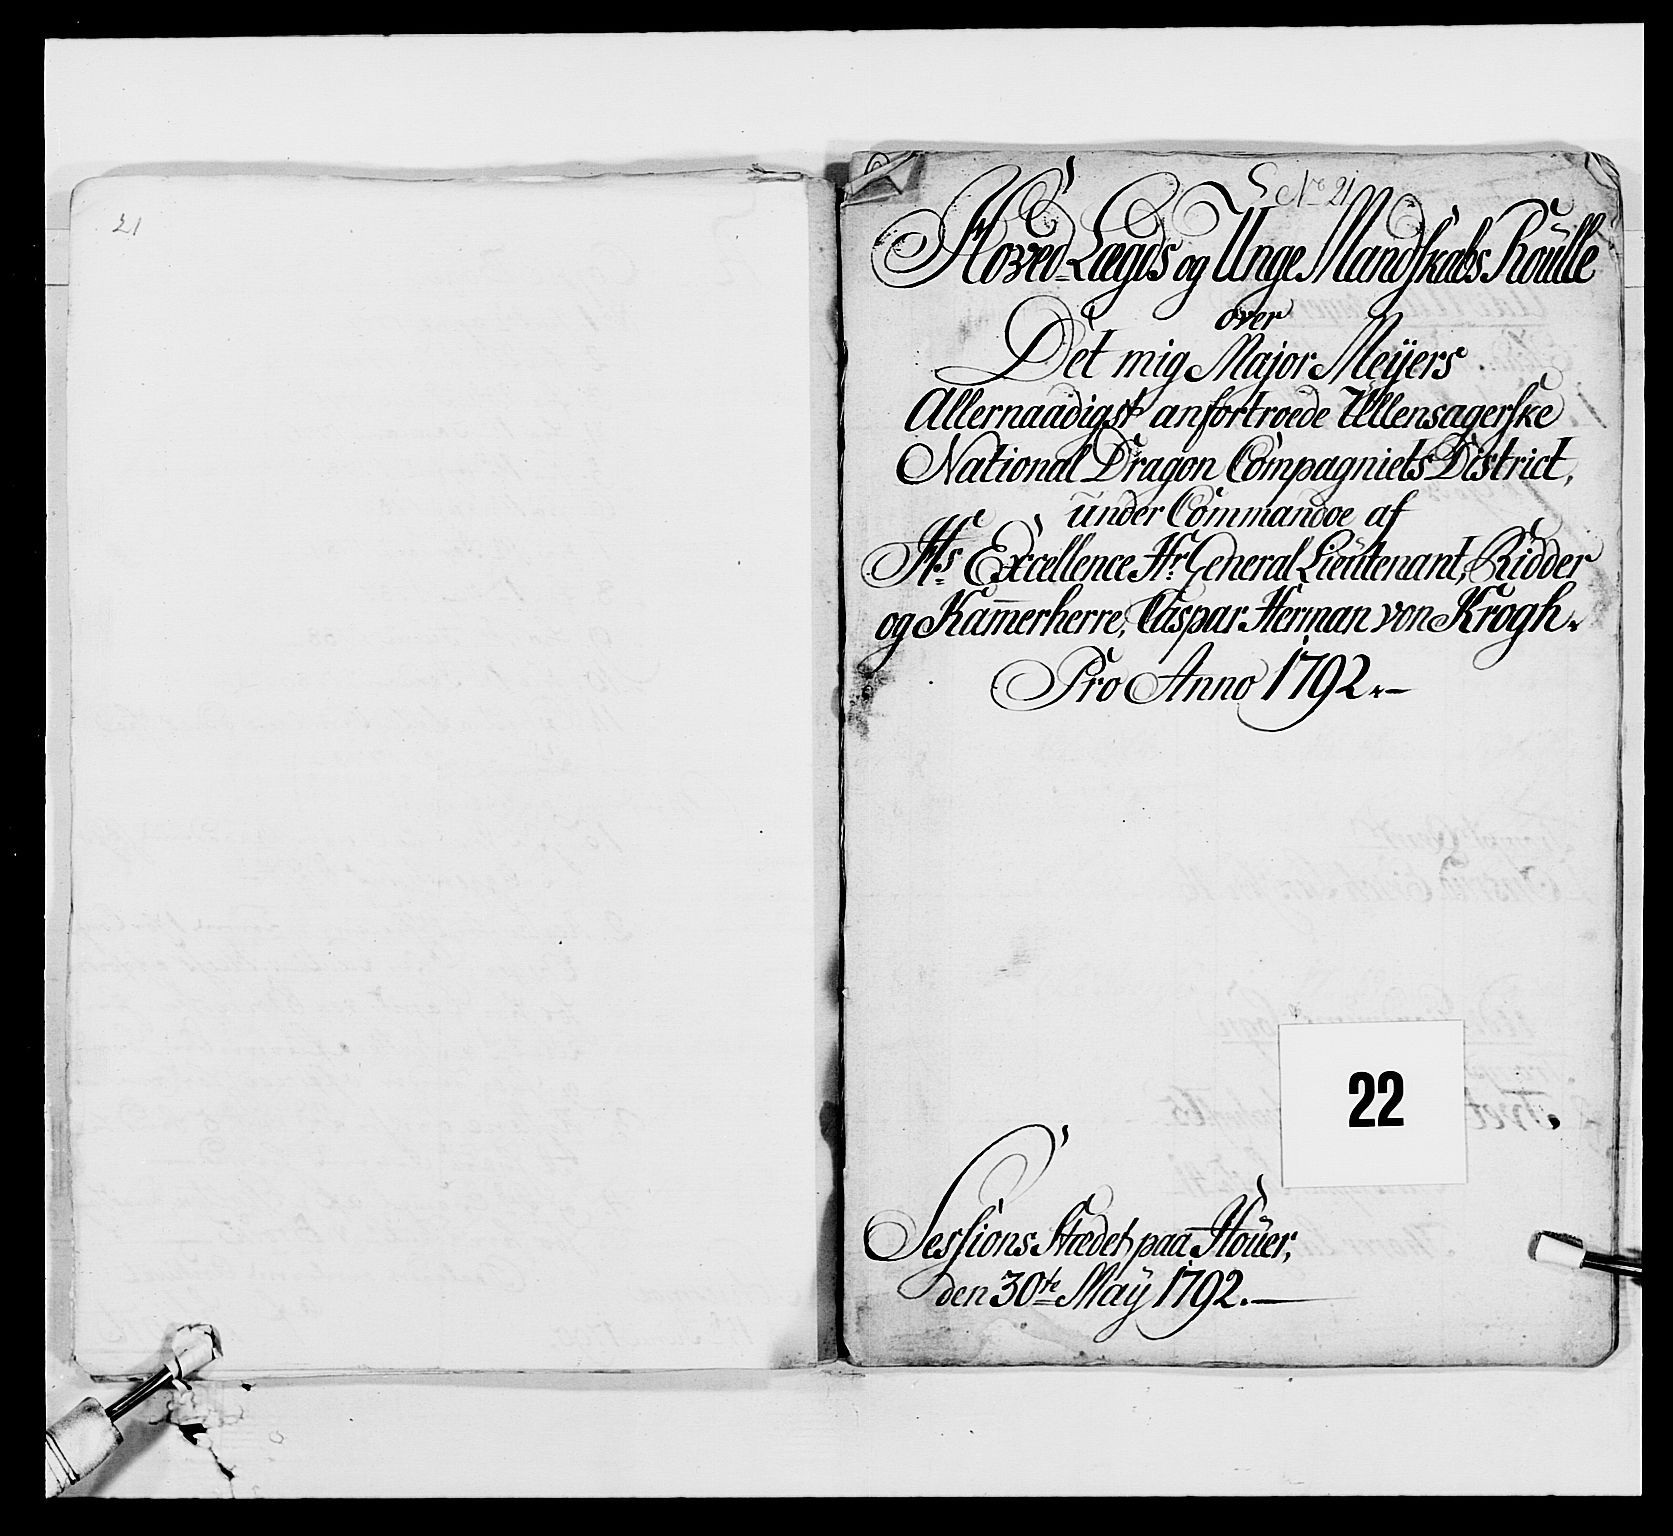 21
No 21
Hoved-Lægds og Unge Mandskabs Roulle
over
Det mig Major Meÿers
Allernaadigst anfortroede Ullensagerske
National Dragon Compagniets District,
under Commandoe af
Hs Excellence Hr General Lieutenant, Ridder
og Kam̅erherre, Caspar Herman von Krogh.
Pro Anno 1792.-
22
Sessions Stædet paa Houer,
den 30te Maÿ 1792.-